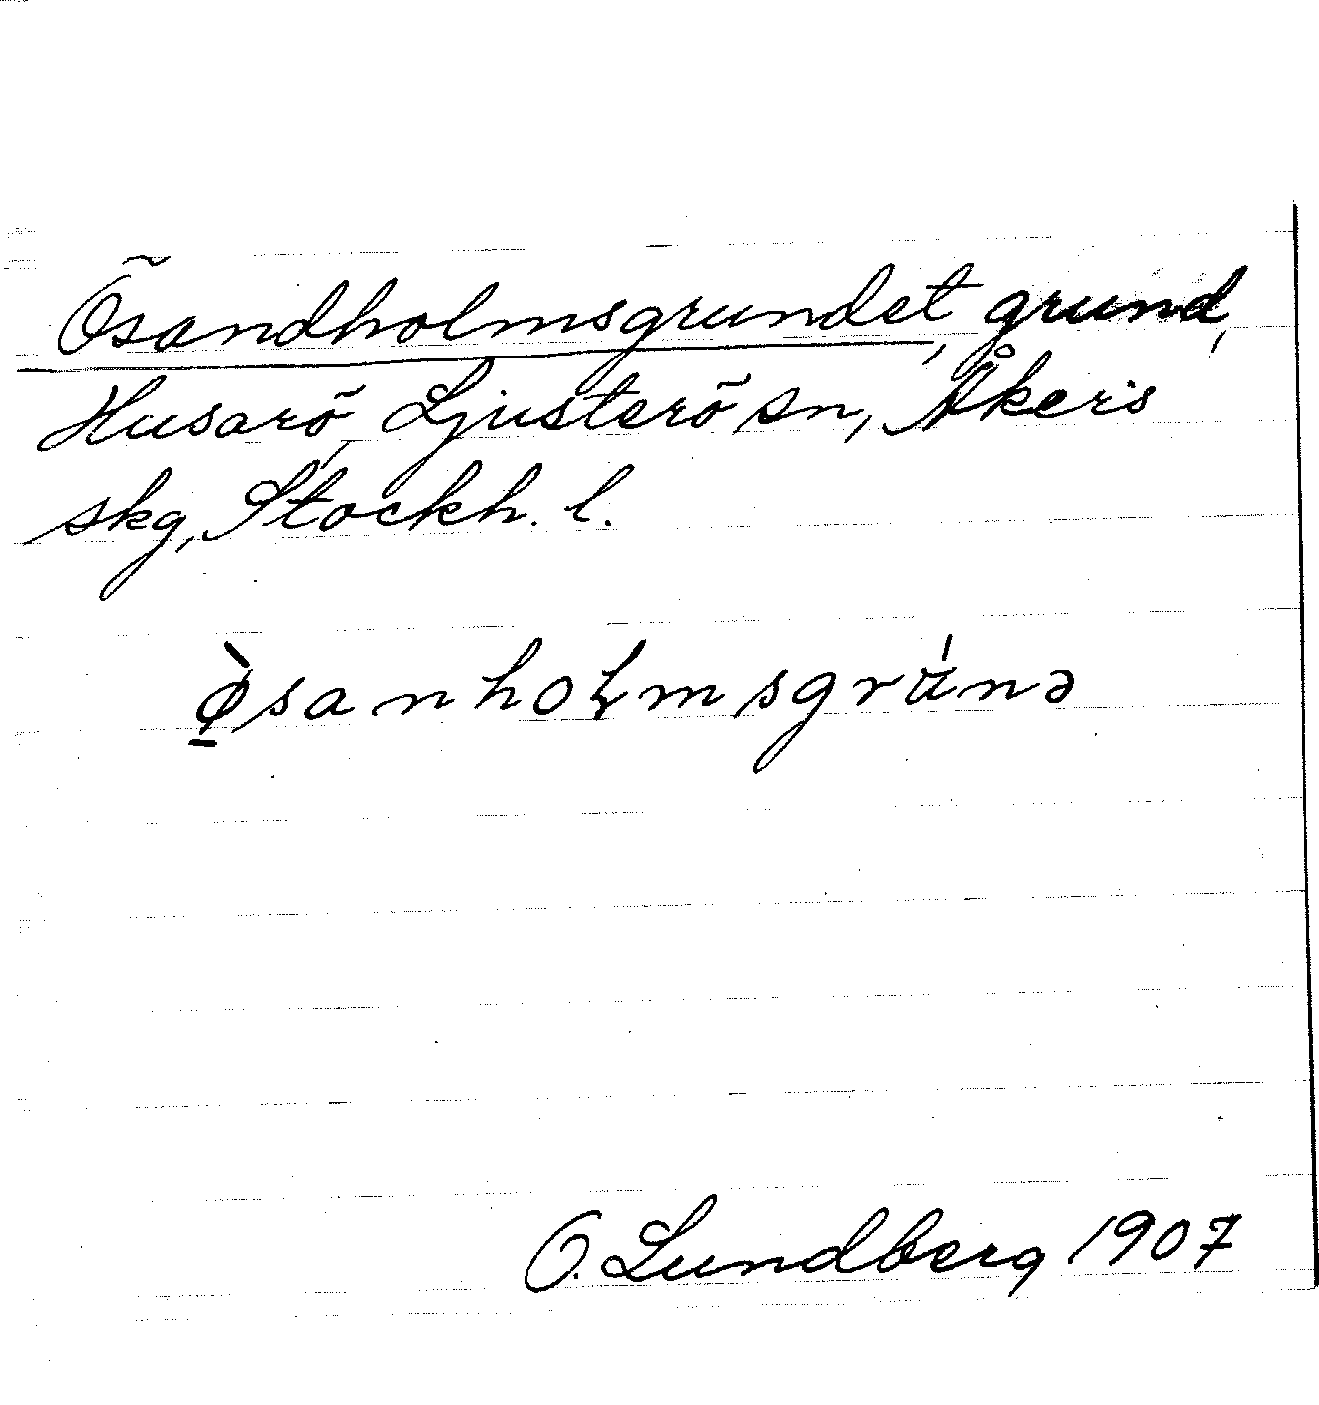 Ösandholmsgrundet, grund,
Husarö, Ljusterö sn, Åkers
skg, Stockh. l.
ø̠̀sanhoɫmsgrúnə
O. Lundberg 1907